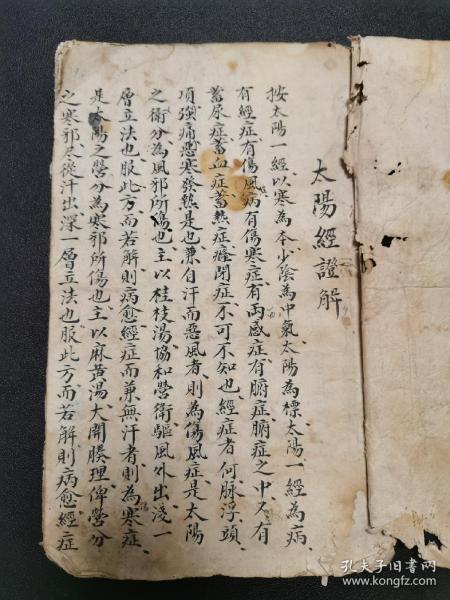 太陽經證解
按太陽一經以寒為本少陰為中氣太陽為標太陽一經為病
有經症有傷風病有傷寒症有兩感症有腑症腑症之中又有
蓄尿症蓄血症蓄熱症癃閉症不可不知也經症者何脉浮頭
項強痛惡寒發熱是也兼自汗而惡風者則為傷風症是太陽
之衛分為風邪所傷也主以桂枝湯協和營衛驅風外出淺一
層立法也服此方而若解則病愈經症而兼無汗者則為寒症
是太陽之營分為寒邪所傷也主以麻黃湯大開腠理俾營分
之寒邪盡從汗出深一層立法也服此方而若解則病愈經症
孔夫子旧書网
www.kongfz.com